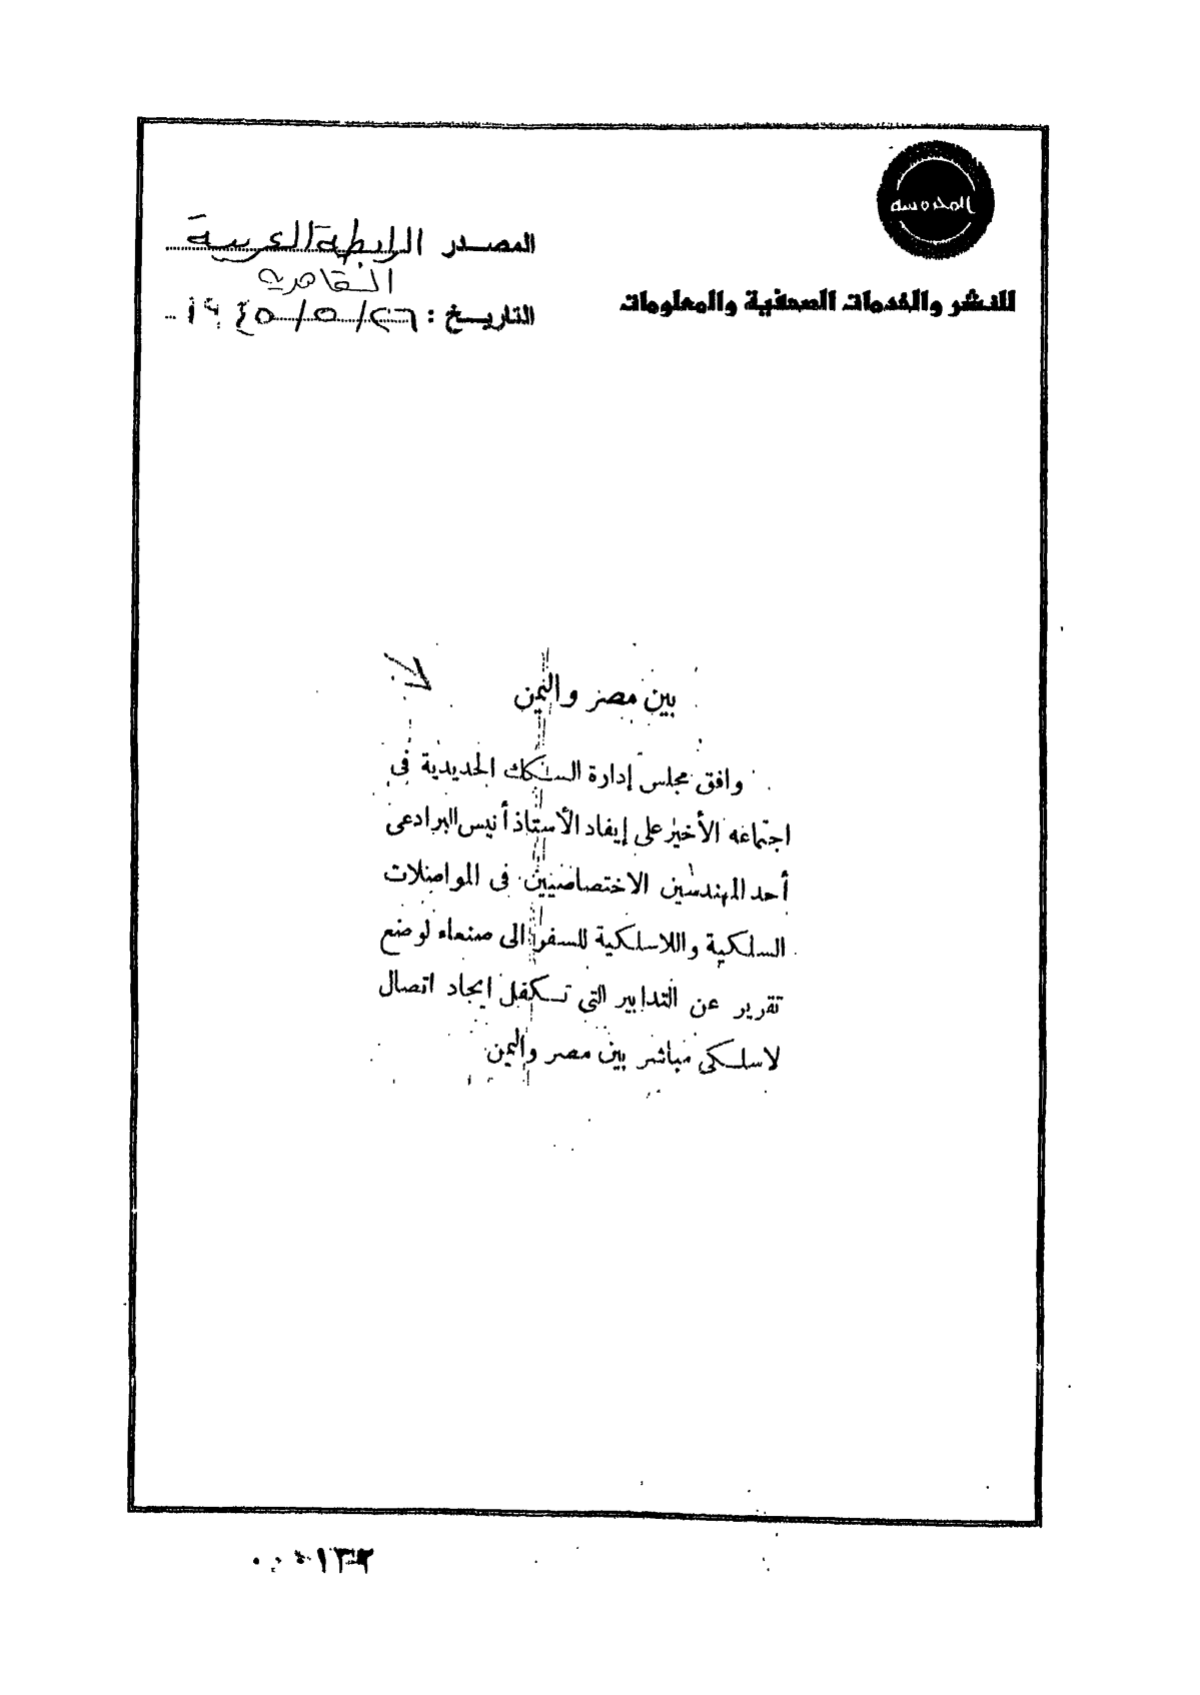 المحروسة
للنشر والخدمات الصحفية والمعلومات
المصدر الرابطة العربية
القاهرية
التاريخ : ٢٦/٥/١٩٤٥
بين مصر واليمن
وافق مجلس إدارة السكك الحديدية فى
اجتماعه الأخير على إيفاد الأستاذ أنيس البرادعى
أحد المهندسين الاختصاصيين فى المواصلات
السلكية واللاسلكية للسفر الى صنعاء لوضع
تقرير عن التدابير التى تكفل ايجاد اتصال
لاسلكى مباشر بين مصر واليمن